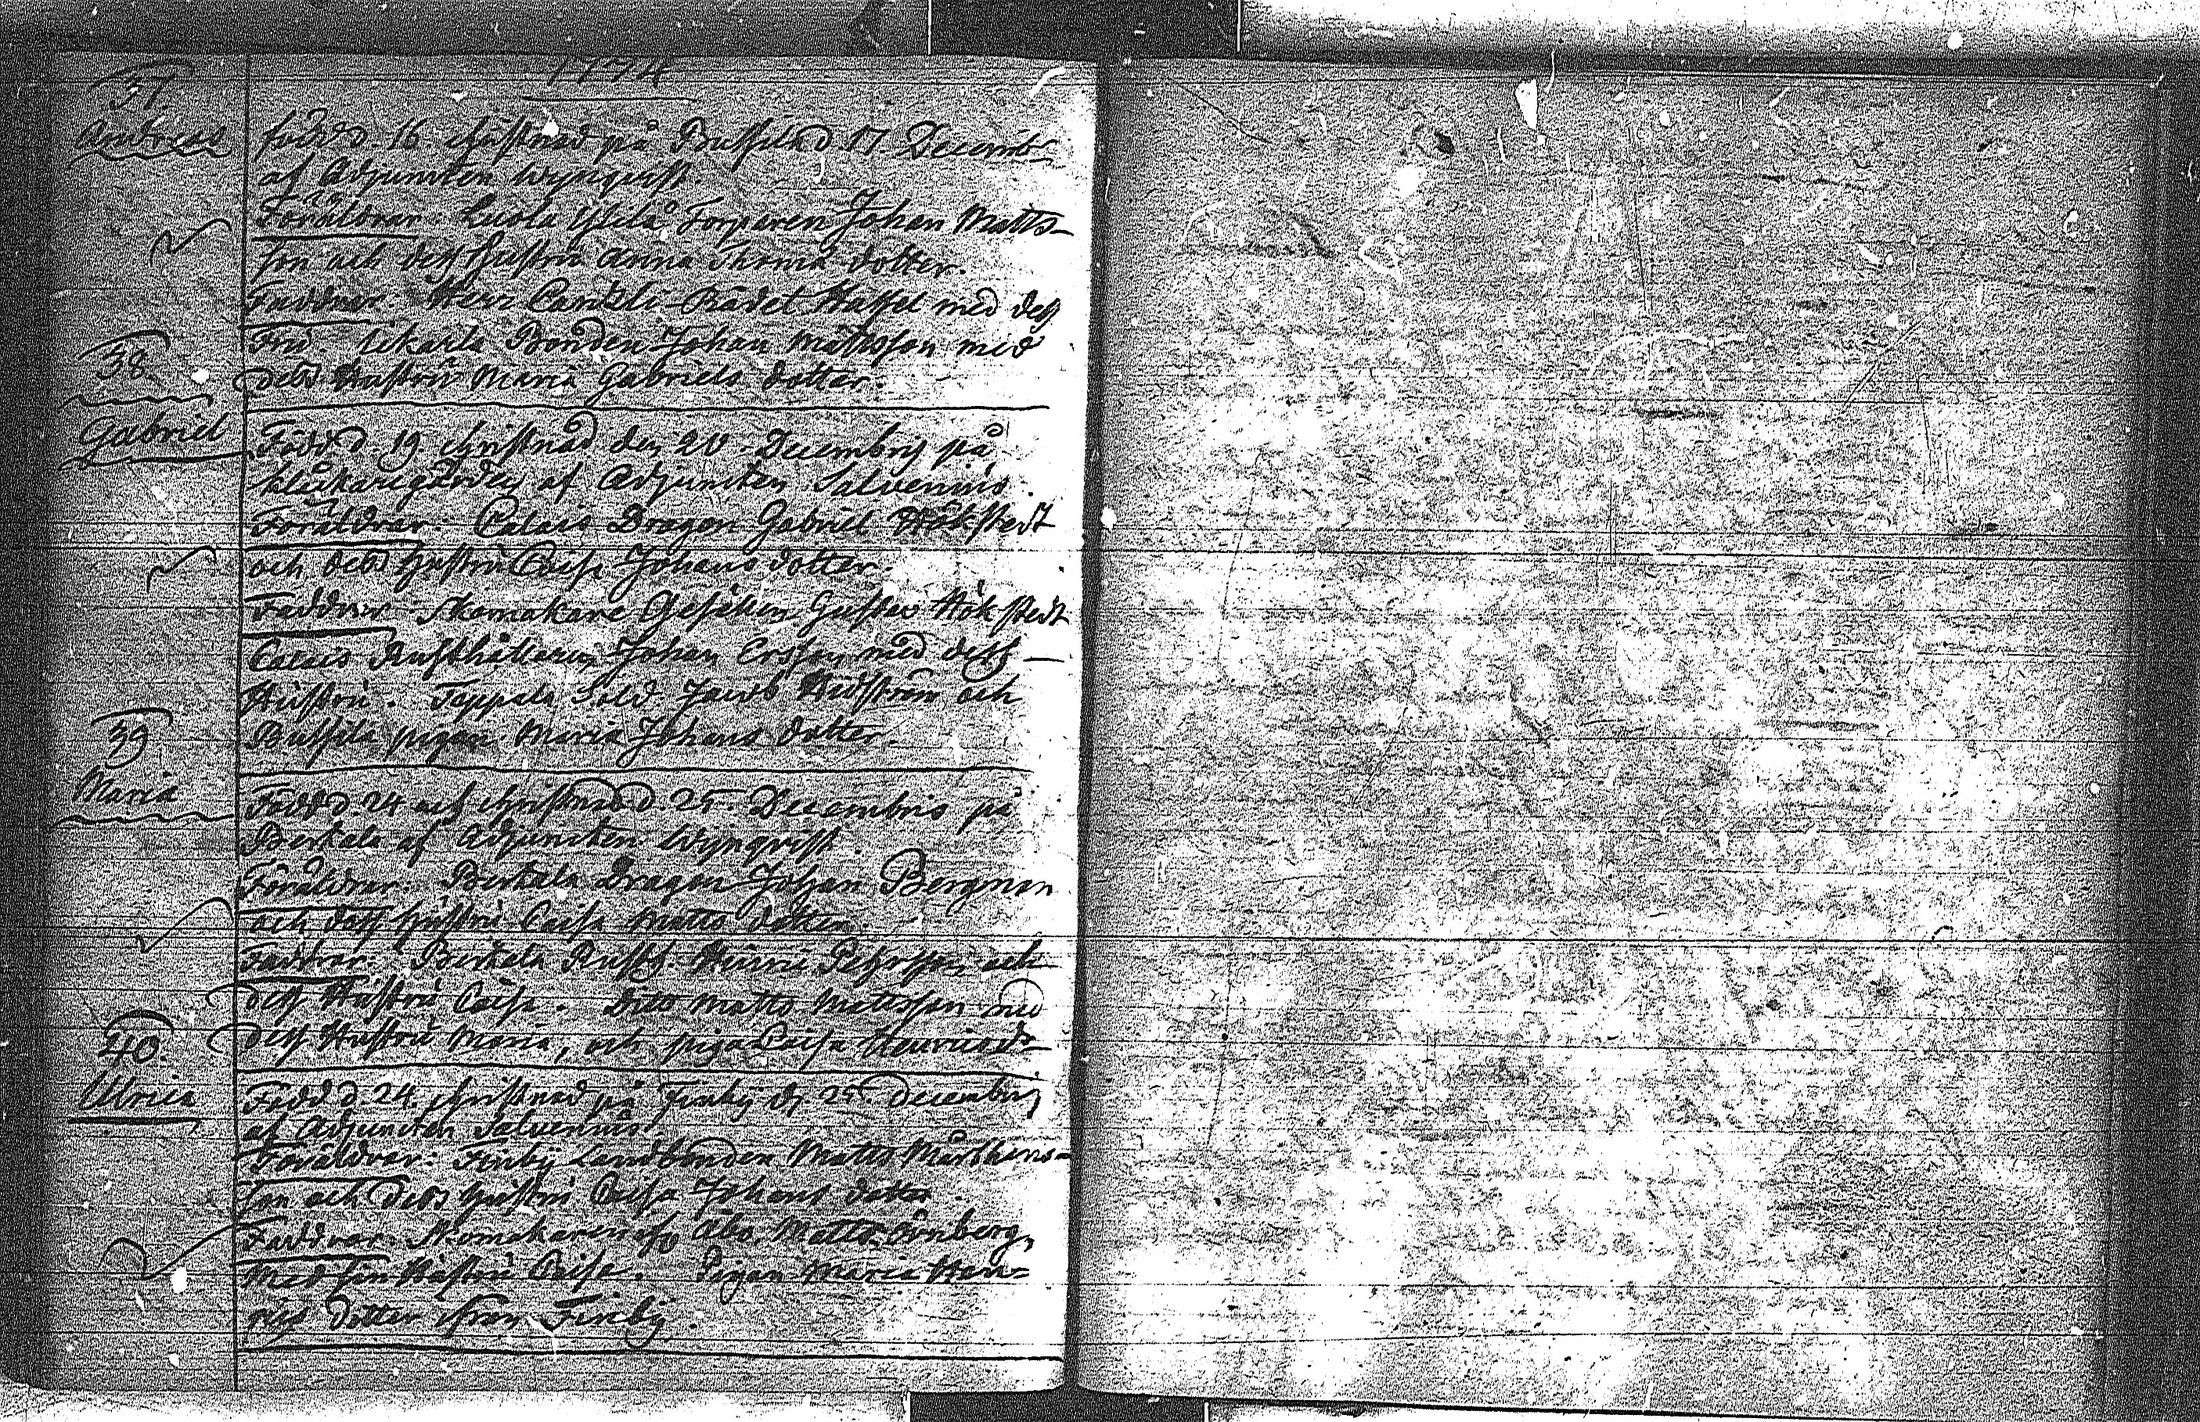 1774
37.
Andreas
född d. 16. christnad på d 17 Decemb.
af Adjuncten Wynqvist
Föräldrar: Torparen Johan Matts-
son och dess hustru Anna Thomæ dotter.
Faddrar: Herr Cantzli-Rådet med dess
Fru Bonden Johan Mattsson med
dess Hustru Maria Gabriels dotter.
38.
Gabriel
Född d. 19 christnad den 20 Decembris på
klåckaregården af Adjuncten Salvenius
Föräldrar: Calais Dragon Gabriel Hökstedt
och dess hustru Caisa Johans dotter.
Faddrar: Skomakare Gesällen Gustav Hökstedt
Calais Rusthållaren Johan Ersson med dess
Hustru. Toppala Sold. Jacob och
pigan Maria Johans dotter
39
Maria
Född d. 24 och christnad d. 25. Decembris på
Berkala af Adjuncten Wynqvist.
Föräldrar: Berkala Dragon Johan Bergman
och dess hustru Caisa Matts dotter.
Faddrar: Berkala Rusth. Hinric Pehrsson och
dess Hustru Caisa. Dito Matts Mattsson med
dess Hustru Maria, och piga Caisa Henricsdr
40.
Ulrica
Född d. 24. christnad på Finby d. 25 Decembris
af Adjuncten Salvenius
Föräldrar: Finby Landbonden Matts Mårthens-
son och dess hustru Caisa Johans dotter.
Faddrar: Skomakaren Åbo Matts Örnberg
med sin Hustru Caisa. Pigan Maria Hen-
rics dotter ifrån Finby.